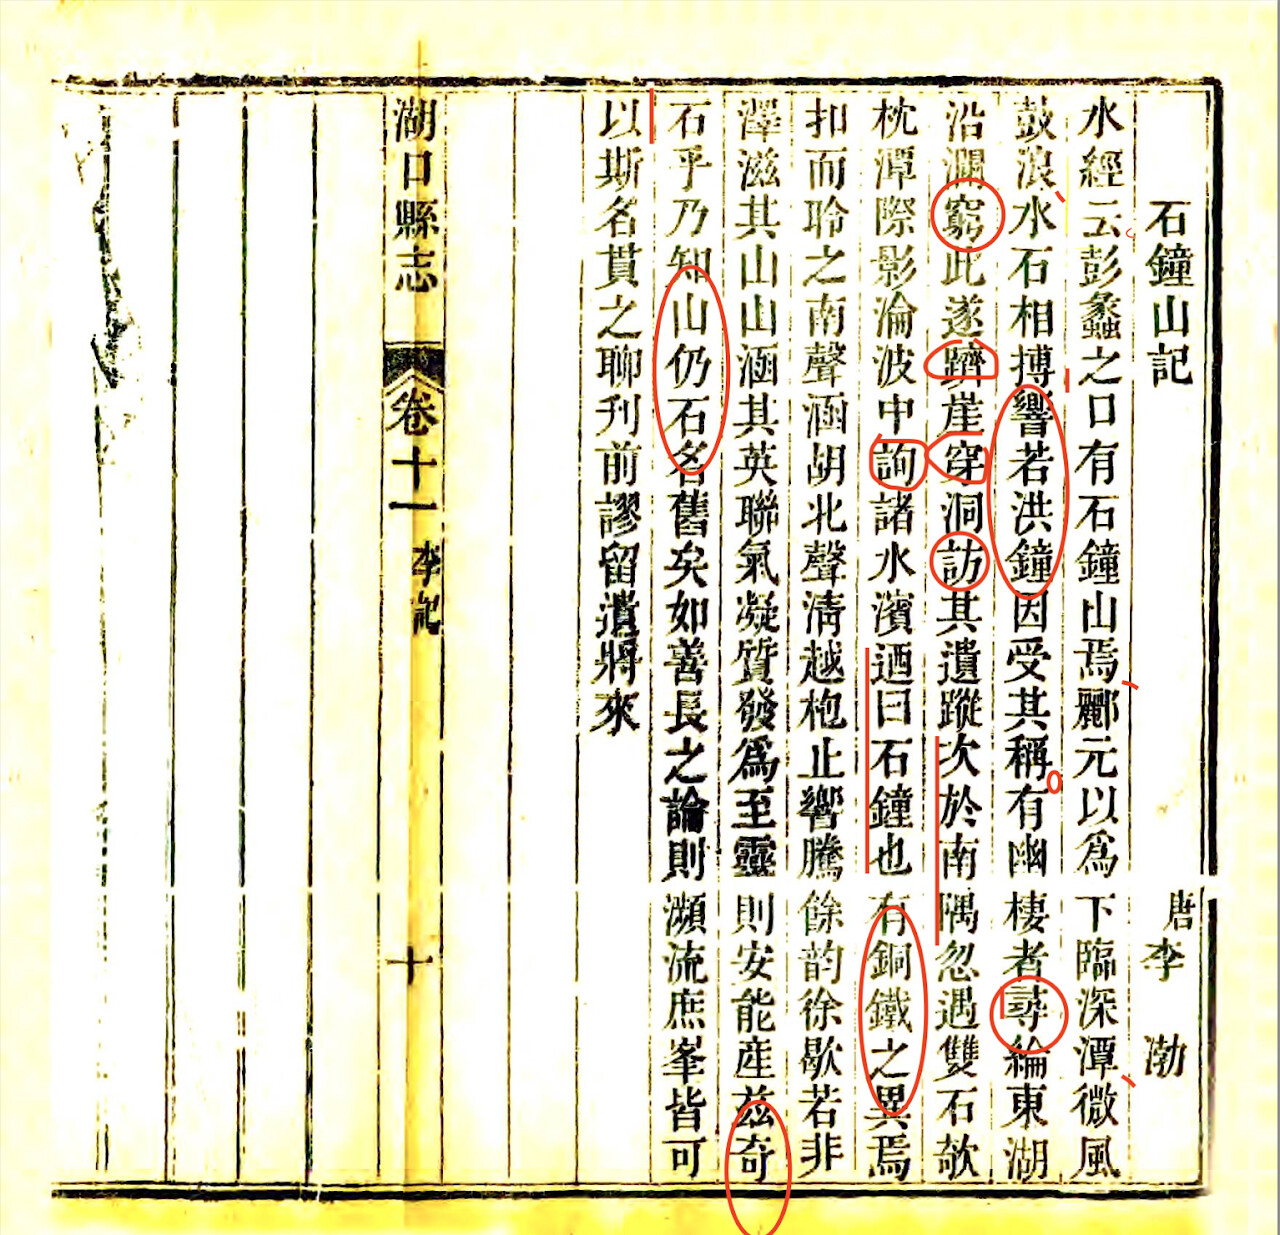 石鐘山記
唐李渤
水經云彭蠡之口有石鐘山焉酈元以爲下臨深潭微風
鼓浪水石相搏響若洪鐘因受其稱有幽棲者尋綸東湖
沿瀾窮此遂躋崖穿洞訪其遺蹤次於南隅忽遇雙石欹
枕潭際影淪波中詢諸水濱迺曰石鐘也有銅鐵之異焉
扣而聆之南聲函胡北聲淸越枹止響騰餘韵徐歇若非
澤滋其山山涵其英聯氣凝質發爲至靈則安能產茲奇
石乎乃知山仍石名舊矣如善長之論則瀕流庶峯皆可
以斯名貫之聊刋前謬留遺將來
湖口縣志
卷十一
李記
十